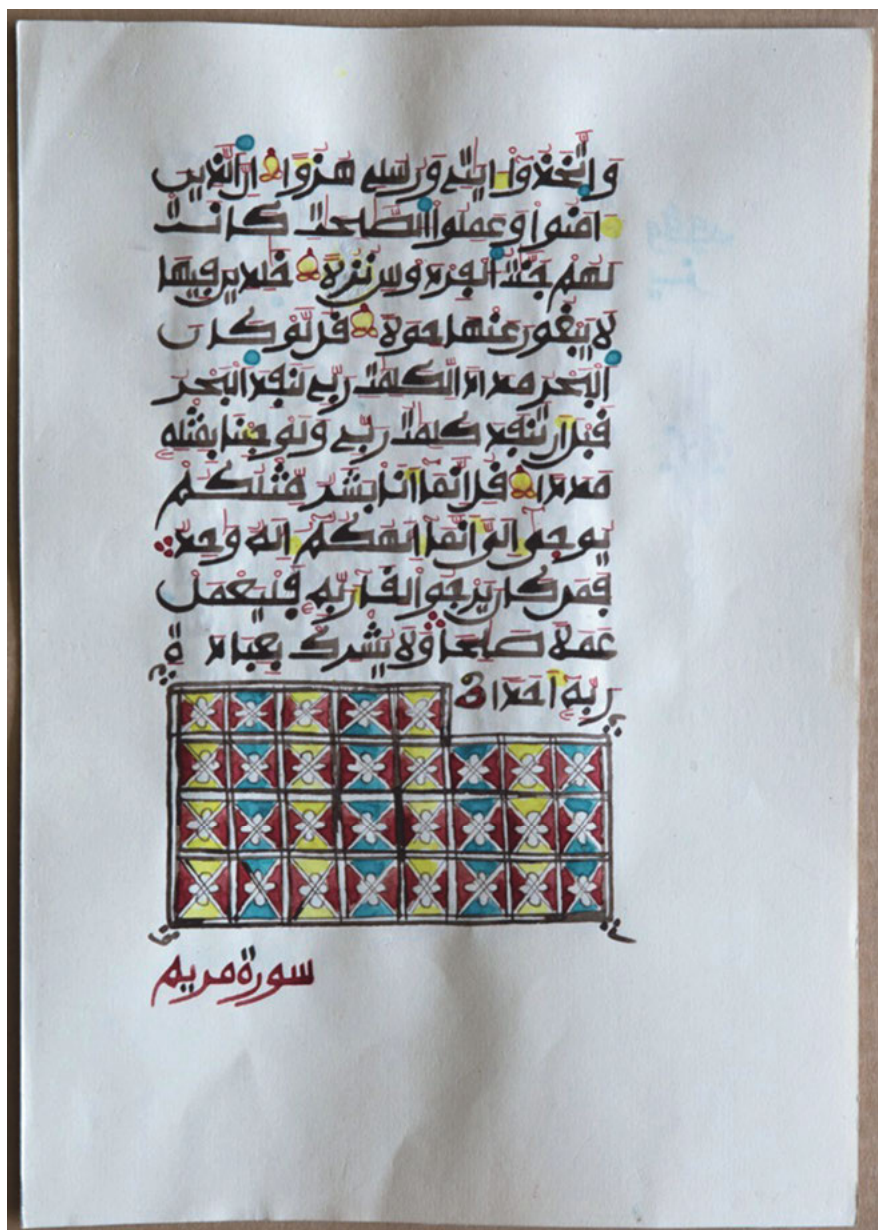 وَاتَّخَذُوٓا ءَايَٰتِے وَرُسُلِے هُزُوًا اِنَّ اَ۬لذِينَ
ءَامَنُوا وَعَمِلُوا اُ۬لصَّٰلِحَٰتِ كَانَتْ
لَهُمْ جَنَّٰتُ اُ۬لْفِرْدَوْسِ نُزُلًا خَٰلِدِينَ فِيهَا
لَا يَبْغُونَ عَنْهَا حِوَلًا قُل لَّوْ كَانَ
اَ۬لْبَحْرُ مِدَادًا لِّكَلِمَٰتِ رَبِّے لَنَفِدَ اَ۬لْبَحْرُ
قَبْلَ أَن تَنفَدَ كَلِمَٰتُ رَبِّے وَلَوْ جِئْنَا بِمِثْلِهِۦ
مَدَدًا قُلِ اِنَّمَآ أَنَا بَشَرٌ مِّثْلُكُمْ
يُوحَىٰٓ إِلَىَّ أَنَّمَآ إِلَٰهُكُمُۥٓ إِلَٰهٌ وَٰحِدٌ
فَمَن كَانَ يَرْجُوا لِقَآءَ رَبِّهِۦ فَلْيَعْمَلْ
عَمَلًا صَٰلِحًا وَلَا يُشْرِكْ بِعِبَادَةِ
رَبِّهِۦٓ أَحَدًا
سورة مريم